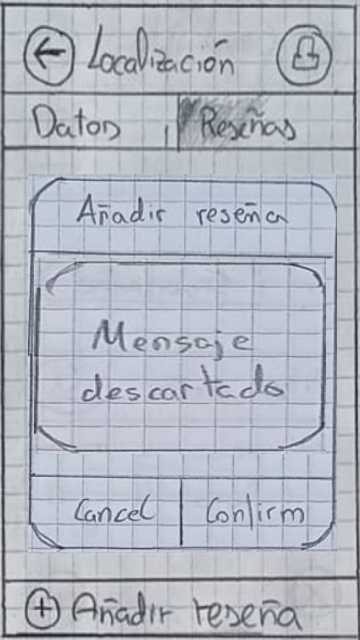 Localización
Datos Reseñas
Añadir reseña
Mensaje
descartado
Cancel Confirm
Añadir reseña